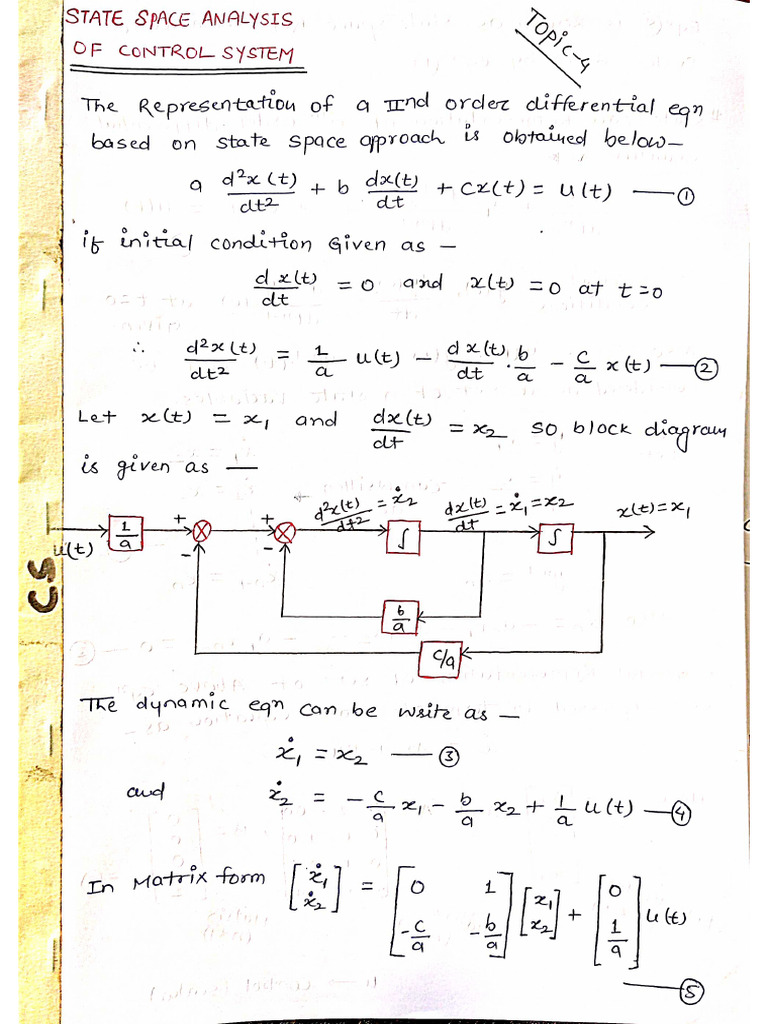 STATE SPACE ANALYSIS
OF CONTROL SYSTEM
TOPIC-4
The Representation of a IInd order differential eqn
based on state space approach is obtained below-
a d²x(t)/dt² + b dx(t)/dt + cx(t) = u(t) — ①
if initial condition Given as -
dx(t)/dt = 0 and x(t) = 0 at t=0
∴ d²x(t)/dt² = 1/a u(t) - dx(t)/dt · b/a - c/a x(t) — ②
Let x(t) = x₁ and dx(t)/dt = x₂ so, block diagram
is given as —
d²x(t)/dt² = ẋ₂ dx(t)/dt = ẋ₁ = x₂ x(t) = x₁
u(t) 1/a + - + - ∫ ∫
b/a
c/a
CS
The dynamic eqn can be write as -
ẋ₁ = x₂ — ③
and ẋ₂ = -c/a x₁ - b/a x₂ + 1/a u(t) — ④
In Matrix form [ẋ₁ ẋ₂] = [0 1 -c/a -b/a] [x₁ x₂] + [0 1/a] u(t)
— ⑤